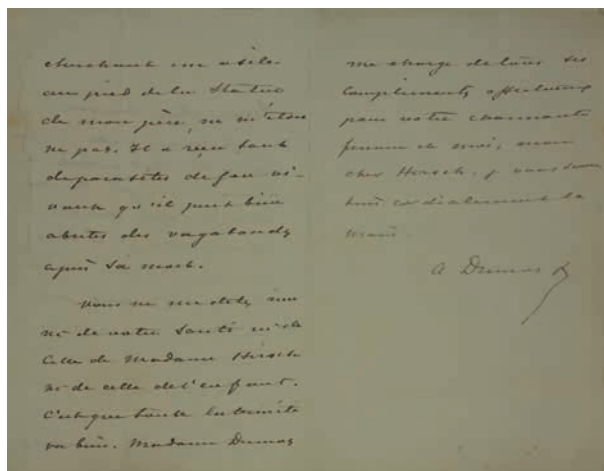 cherchant un asile
au pied de la statue
de mon père, ne m'étonne
pas. Il a reçu tant
de parasites de son vi-
vant qu'il peut bien
abriter des vagabonds
après sa mort.
Vous ne me dites rien
ni de votre santé ni de
celle de Madame Hirsch
ni de celle de l'enfant.
C'est que toute la
va bien. Madame Dumas
me charge de tous ses
compliments affectueux
pour votre charmante
femme et moi, mon
cher Hirsch, je vous serre
bien cordialement la
main.
A Dumas f